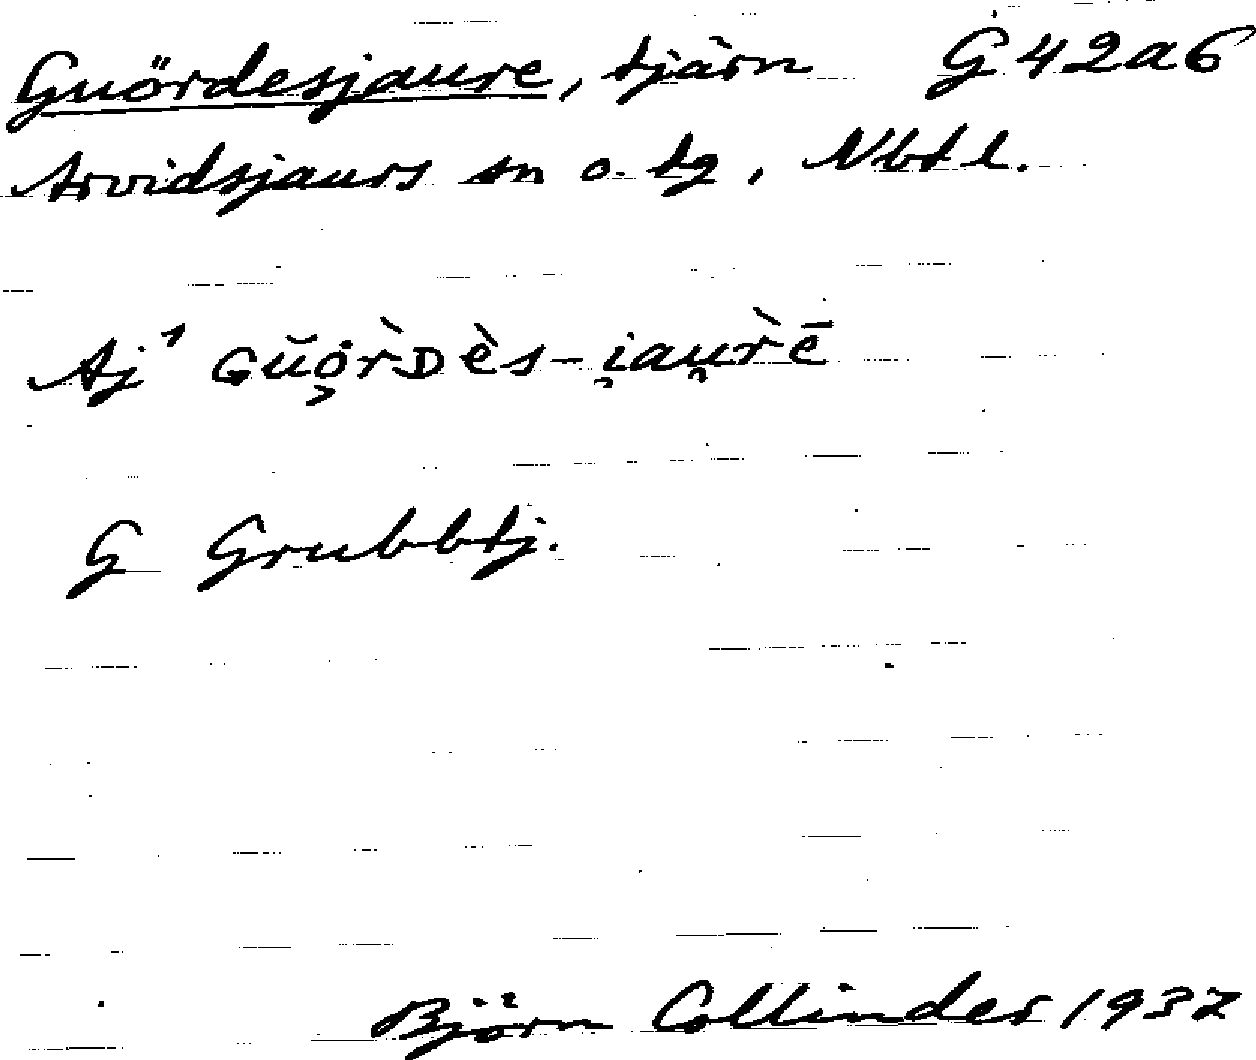 Guördesjaure, tjärn G42a6
Arvidsjaurs sn o. tg, Nbtl.
Aj¹ Gŭȯ̜r̀Dès-i̯au̯r̀ē
G Grubbtj.
Björn Collinder 1937